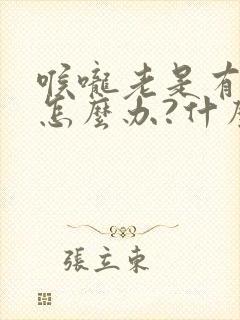 喉嚨老是有
怎麼办?什麼
張立東